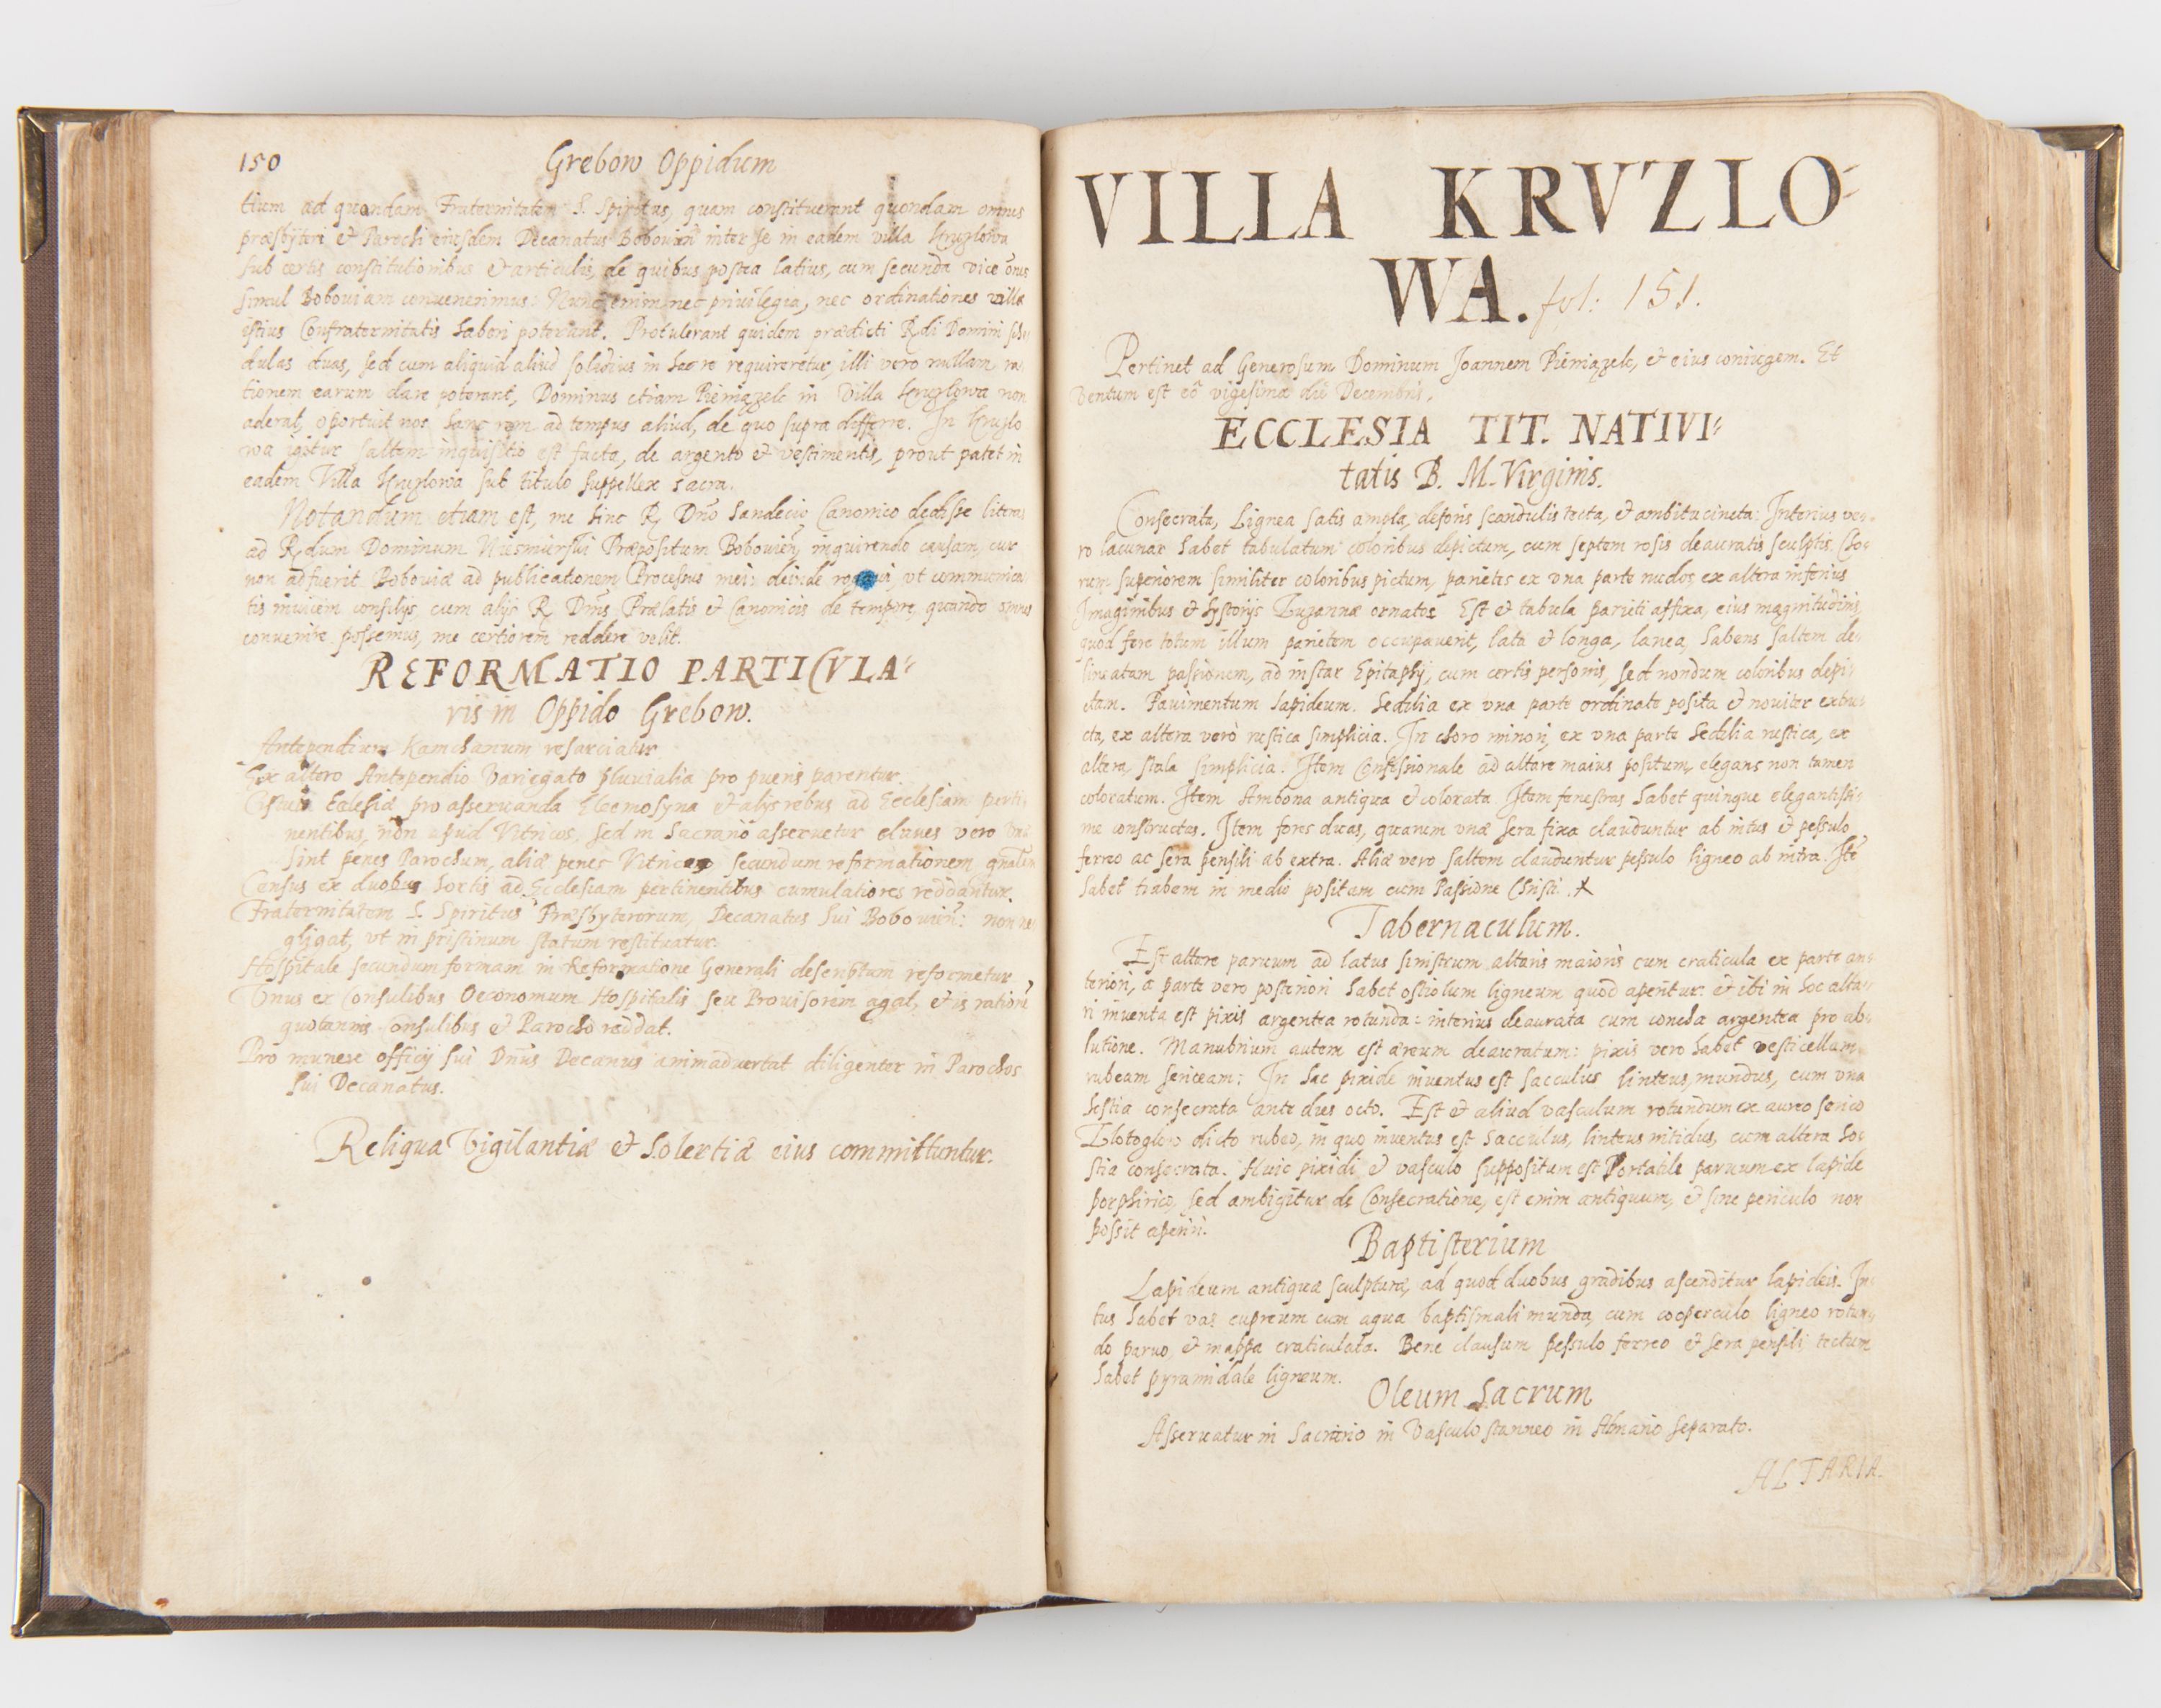 150
Grebow Oppidum
tium ad quandam Fraternitatem S. Spiritus, quam constituerant quondam omnes
præsbyteri & Parochi eiusdem Decanatus Bobowien̄ inter se in eadem villa Kruzlowa
sub certis constitutionibus & articulis, de quibus postea latius, cum secunda vice om̄es
simul Boboviam convenerimus: Nunc enim nec privilegia, nec ordinationes ullæ
istius Confraternitatis haberi poterant. Protulerant quidem prædicti Rdi Domini sche
dulas duas, sed cum aliquid aliud solidius in hac re requireretur, illi vero nullam ra
tionem earum dare poterant, Dominus etiam Pieniązek in Villa Kruzlowa non
aderat, oportuit nos hanc rem ad tempus aliud, de quo supra differre. In Kruzlo
wa igitur saltem inquisitio est facta, de argento & vestimentis, prout patet in
eadem Villa Kruzlowa sub titulo Suppellex sacra.
Notandum etiam est, me hinc R. Dn̄o Sandecio Canonico dedisse literas
ad Rdum Dominum Præpositum Bobowien̄, inquirendo causam, cur
non adfuerit Boboviæ ad publicationem Processus mei: deinde ut communica
tis invicem consilijs cum alijs R. Dn̄is Prælatis & Canonicis de tempore, quando omnes
convenire possemus, me certiorem reddere velit.
REFORMATIO PARTICVLA=
ris in Oppido Grebow.
Antependium Kamchanum resarciatur
Ex altero Antependio Variegato pluvialia pro pueris parentur.
Cistula Ecclesiæ pro asseruanda Eleemosyna & alijs rebus ad Ecclesiam perti
nentibus, non apud Vitricos, sed in Sacrario asseruetur claues vero
sint penes Parochum, aliæ penes Vitricos secundum reformationem gn̄alem
Census ex duobus hortis ad Ecclesiam pertinentibus cumulatiores reddantur.
Fraternitatem S. Spiritus Præsbyterorum, Decanatus sui Bobowien̄: non ne
gligat, ut in pristinum statum restituatur.
Hospitale secundum formam in Reformatione Generali descriptum reformetur
Vnus ex Consulibus Oeconomum Hospitalis seu Provisorem agat, & is rationē
quotannis Consulibus & Parocho reddat.
Pro munere officij sui Dn̄us Decanus animaduertat diligenter in Parochos
sui Decanatus.
Reliqua Vigilantiæ & Solertiæ eius committuntur.
VILLA KRVZLO=
WA. fol: 151.
Pertinet ad Generosum Dominum Joannem Pieniązek, & eius coniugem. Et
Ventum est eō vigesima die Decembris.
ECCLESIA TIT. NATIVI=
tatis B. M. Virginis.
Consecrata, Lignea satis ampla, deforis scandulis tecta, & ambitu cincta: Interius ve=
ro lacunar habet tabulatum coloribus depictum, cum septem rosis deauratis sculptis. Cho=
rum superiorem similiter coloribus pictum, parietes ex vna parte nudos, ex altera inferius
Imaginibus & hystorijs Suzannæ ornatos. Est & tabula parieti affixa, eius magnitudinis
quod fere totum illum parietem occupauerit, lata & longa, lanea, habens saltem de=
lineatam passionem, ad instar Epitaphij, cum certis personis, sed nondum coloribus depi=
ctam. Pauimentum lapideum. Sedilia ex vna parte ordinate posita & noviter extru=
cta, ex altera verò rustica simplicia. In choro minori, ex vna parte Sedilia rustica, ex
altera, stala simplicia. Item Confessionale ad altare maius positum, elegans non tamen
coloratum. Item Ambona antiqua & colorata. Item fenestras habet quinque elegantissi=
me constructas. Item fores duas, quarum vnæ sera fixa clauduntur ab intus & pessulo
ferreo ac sera pensili ab extra. Aliæ vero saltem clauduntur pessulo ligneo ab intra. Itē
habet trabem in medio positam cum Passione Christi.
Tabernaculum.
Est altare paruum ad latus sinistrum altaris maioris cum craticula ex parte an=
teriori, a parte vero posteriori habet ostiolum ligneum quod aperitur: & ibi in hoc alta=
ri inuenta est pixis argentea rotunda: interius deaurata cum concha argentea pro ab=
lutione. Manubrium autem est æreum deauratum: pixis vero habet vesticellam
rubeam sericeam: In hac pixide inuentus est sacculus linteus, mundus, cum vna
hostia consecrata ante dies octo. Est & aliud vasculum rotundum ex aureo serico
dicto rubeo, in quo inuentus est Sacculus, linteus nitidus, cum altera ho=
stia consecrata. Huic pixidi & vasculo suppositum est Portatile paruum ex lapide
porphirico, sed ambigitur de Consecratione, est enim antiquum, & sine periculo non
possit aperiri.
Baptisterium
Lapideum antiquæ sculpturæ, ad quod duobus gradibus ascenditur lapideis. In=
tus habet vas cupreum cum aqua baptismali munda, cum cooperculo ligneo rotun=
do paruo, & mappa craticulata. Bene clausum pessulo ferreo & sera pensili, tectum
habet pyramidale ligneum.
Oleum Sacrum
Asseruatur in Sacrario in Vasculo stanneo in Almario separato.
ALTARIA.